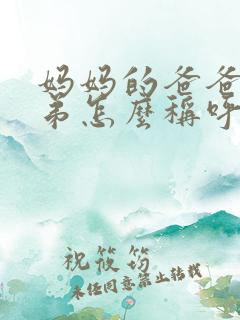 妈妈的爸爸
弟怎麼稱呼
祝筱筠
未经同意禁止转载